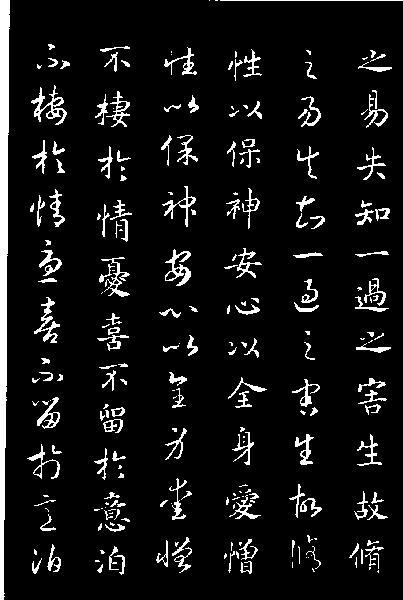 之易失知一過之害生故脩
之易失知一過之害生故脩
性以保神安心以全身愛憎
性以保神安心以全身愛憎
不棲於情憂喜不留於意泊
不棲於情憂喜不留於意泊